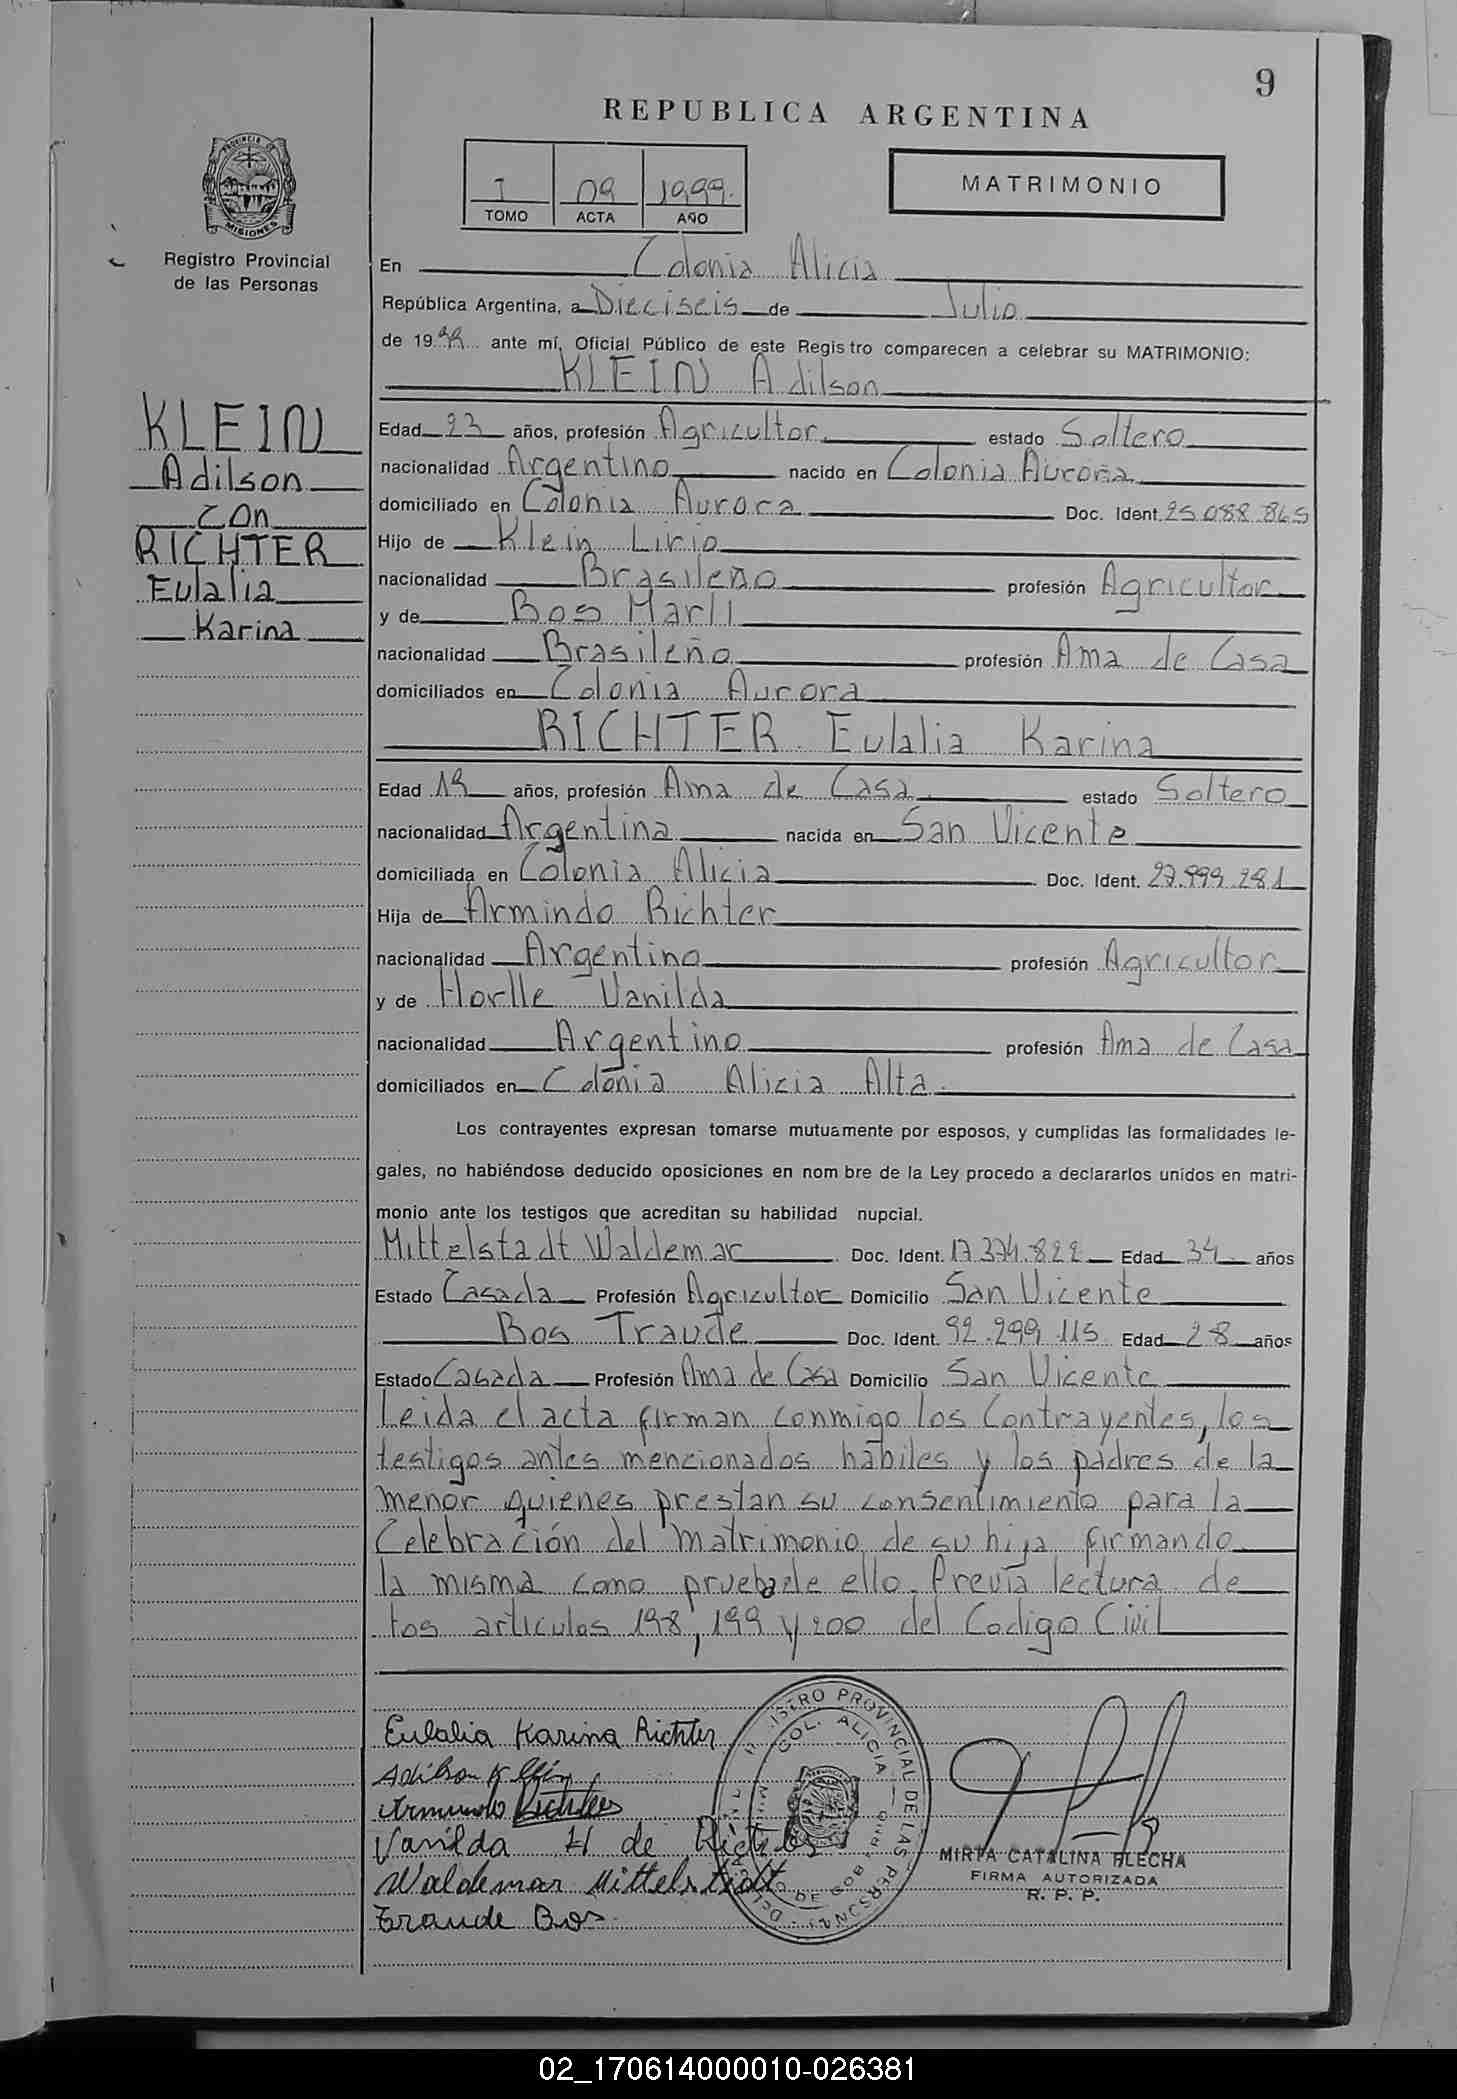 9
REPUBLICA ARGENTINA
I 09 1999.
TOMO ACTA AÑO
MATRIMONIO
PROVINCIA DE MISIONES
Registro Provincial
de las Personas
KLEIN
Adilson
con
RICHTER
Eulalia
Karina
En Colonia Alicia
República Argentina, a Dieciseis de Julio
de 1999 ante mí, Oficial Público de este Registro comparecen a celebrar su MATRIMONIO:
KLEIN Adilson
Edad 23 años, profesión Agricultor estado Soltero
nacionalidad Argentino nacido en Colonia Aurora
domiciliado en Colonia Aurora Doc. Ident. 25.088.865
Hijo de Klein Lirio
nacionalidad Brasileño profesión Agricultor
y de Bos Marli
nacionalidad Brasileño profesión Ama de Casa
domiciliados en Colonia Aurora
RICHTER Eulalia Karina
Edad 19 años, profesión Ama de Casa estado Soltero
nacionalidad Argentina nacida en San Vicente
domiciliada en Colonia Alicia Doc. Ident. 27.999.281
Hija de Armindo Richter
nacionalidad Argentino profesión Agricultor
y de Horlle Vanilda
nacionalidad Argentino profesión Ama de Casa
domiciliados en Colonia Alicia Alta.
Los contrayentes expresan tomarse mutuamente por esposos, y cumplidas las formalidades le-
gales, no habiéndose deducido oposiciones en nom bre de la Ley procedo a declararlos unidos en matri-
monio ante los testigos que acreditan su habilidad nupcial.
Mittelstadt Waldemar Doc. Ident. 17.374.822 Edad 34 años
Estado Casada Profesión Agricultor Domicilio San Vicente
Bos Traude Doc. Ident. 92.299.115 Edad 28 años
Estado Casada Profesión Ama de Casa Domicilio San Vicente
Leida el acta firman conmigo los Contrayentes, los
testigos antes mencionados hábiles y los padres de la
menor quienes prestan su consentimiento para la
Celebración del matrimonio de su hija firmando
la misma como prueba de ello. Previa lectura de
los articulos 198, 199 y 200 del Codigo Civil
Eulalia Karina Richter
Adilson Klein
Armindo Richter
Vanilda H de Richter
Waldemar Mittelstadt
Traude Bos.
REGISTRO PROVINCIAL DE LAS PERSONAS
COL. ALICIA
MIRTA CATALINA FLECHA
FIRMA AUTORIZADA
R. P. P.
02_170614000010-026381